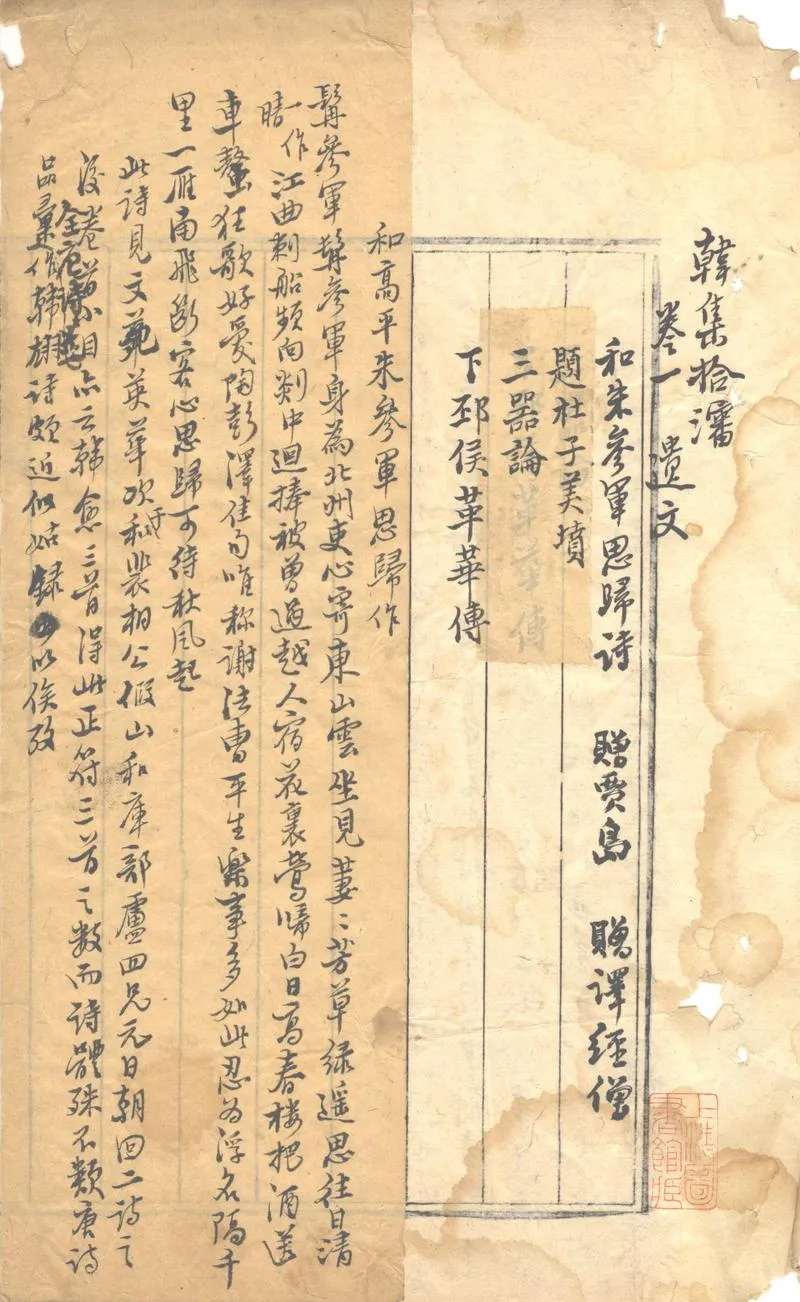 韓集拾瀋
卷一 遺文
和朱參軍思歸詩 贈賈島 贈譯經僧
題杜子美墳
三器論
下邳侯革華傳
和高平朱參軍思歸作
髯參軍髯參軍身為北州吏心寄東山雲坐見萋〻芳草綠遥思往日清
江曲刺船頻向剡中迴捧被曾過越人宿花裏鶯啼白日高春樓把酒送
車螯狂歌好愛陶彭澤佳句唯称謝法曹平生樂事多如此忍為浮名隔千
里一雁南飛斷客心思歸可待秋風起
此詩見文苑英華次於和裴相公假山和庫部盧四兄元日朝回二詩之
後卷首小目亦云韓愈三首得此正符三首之数而詩體殊不類唐詩
品彙作韓翃詩頗近似姑錄以俟攷
一作晴
全唐詩
上海圖書館藏